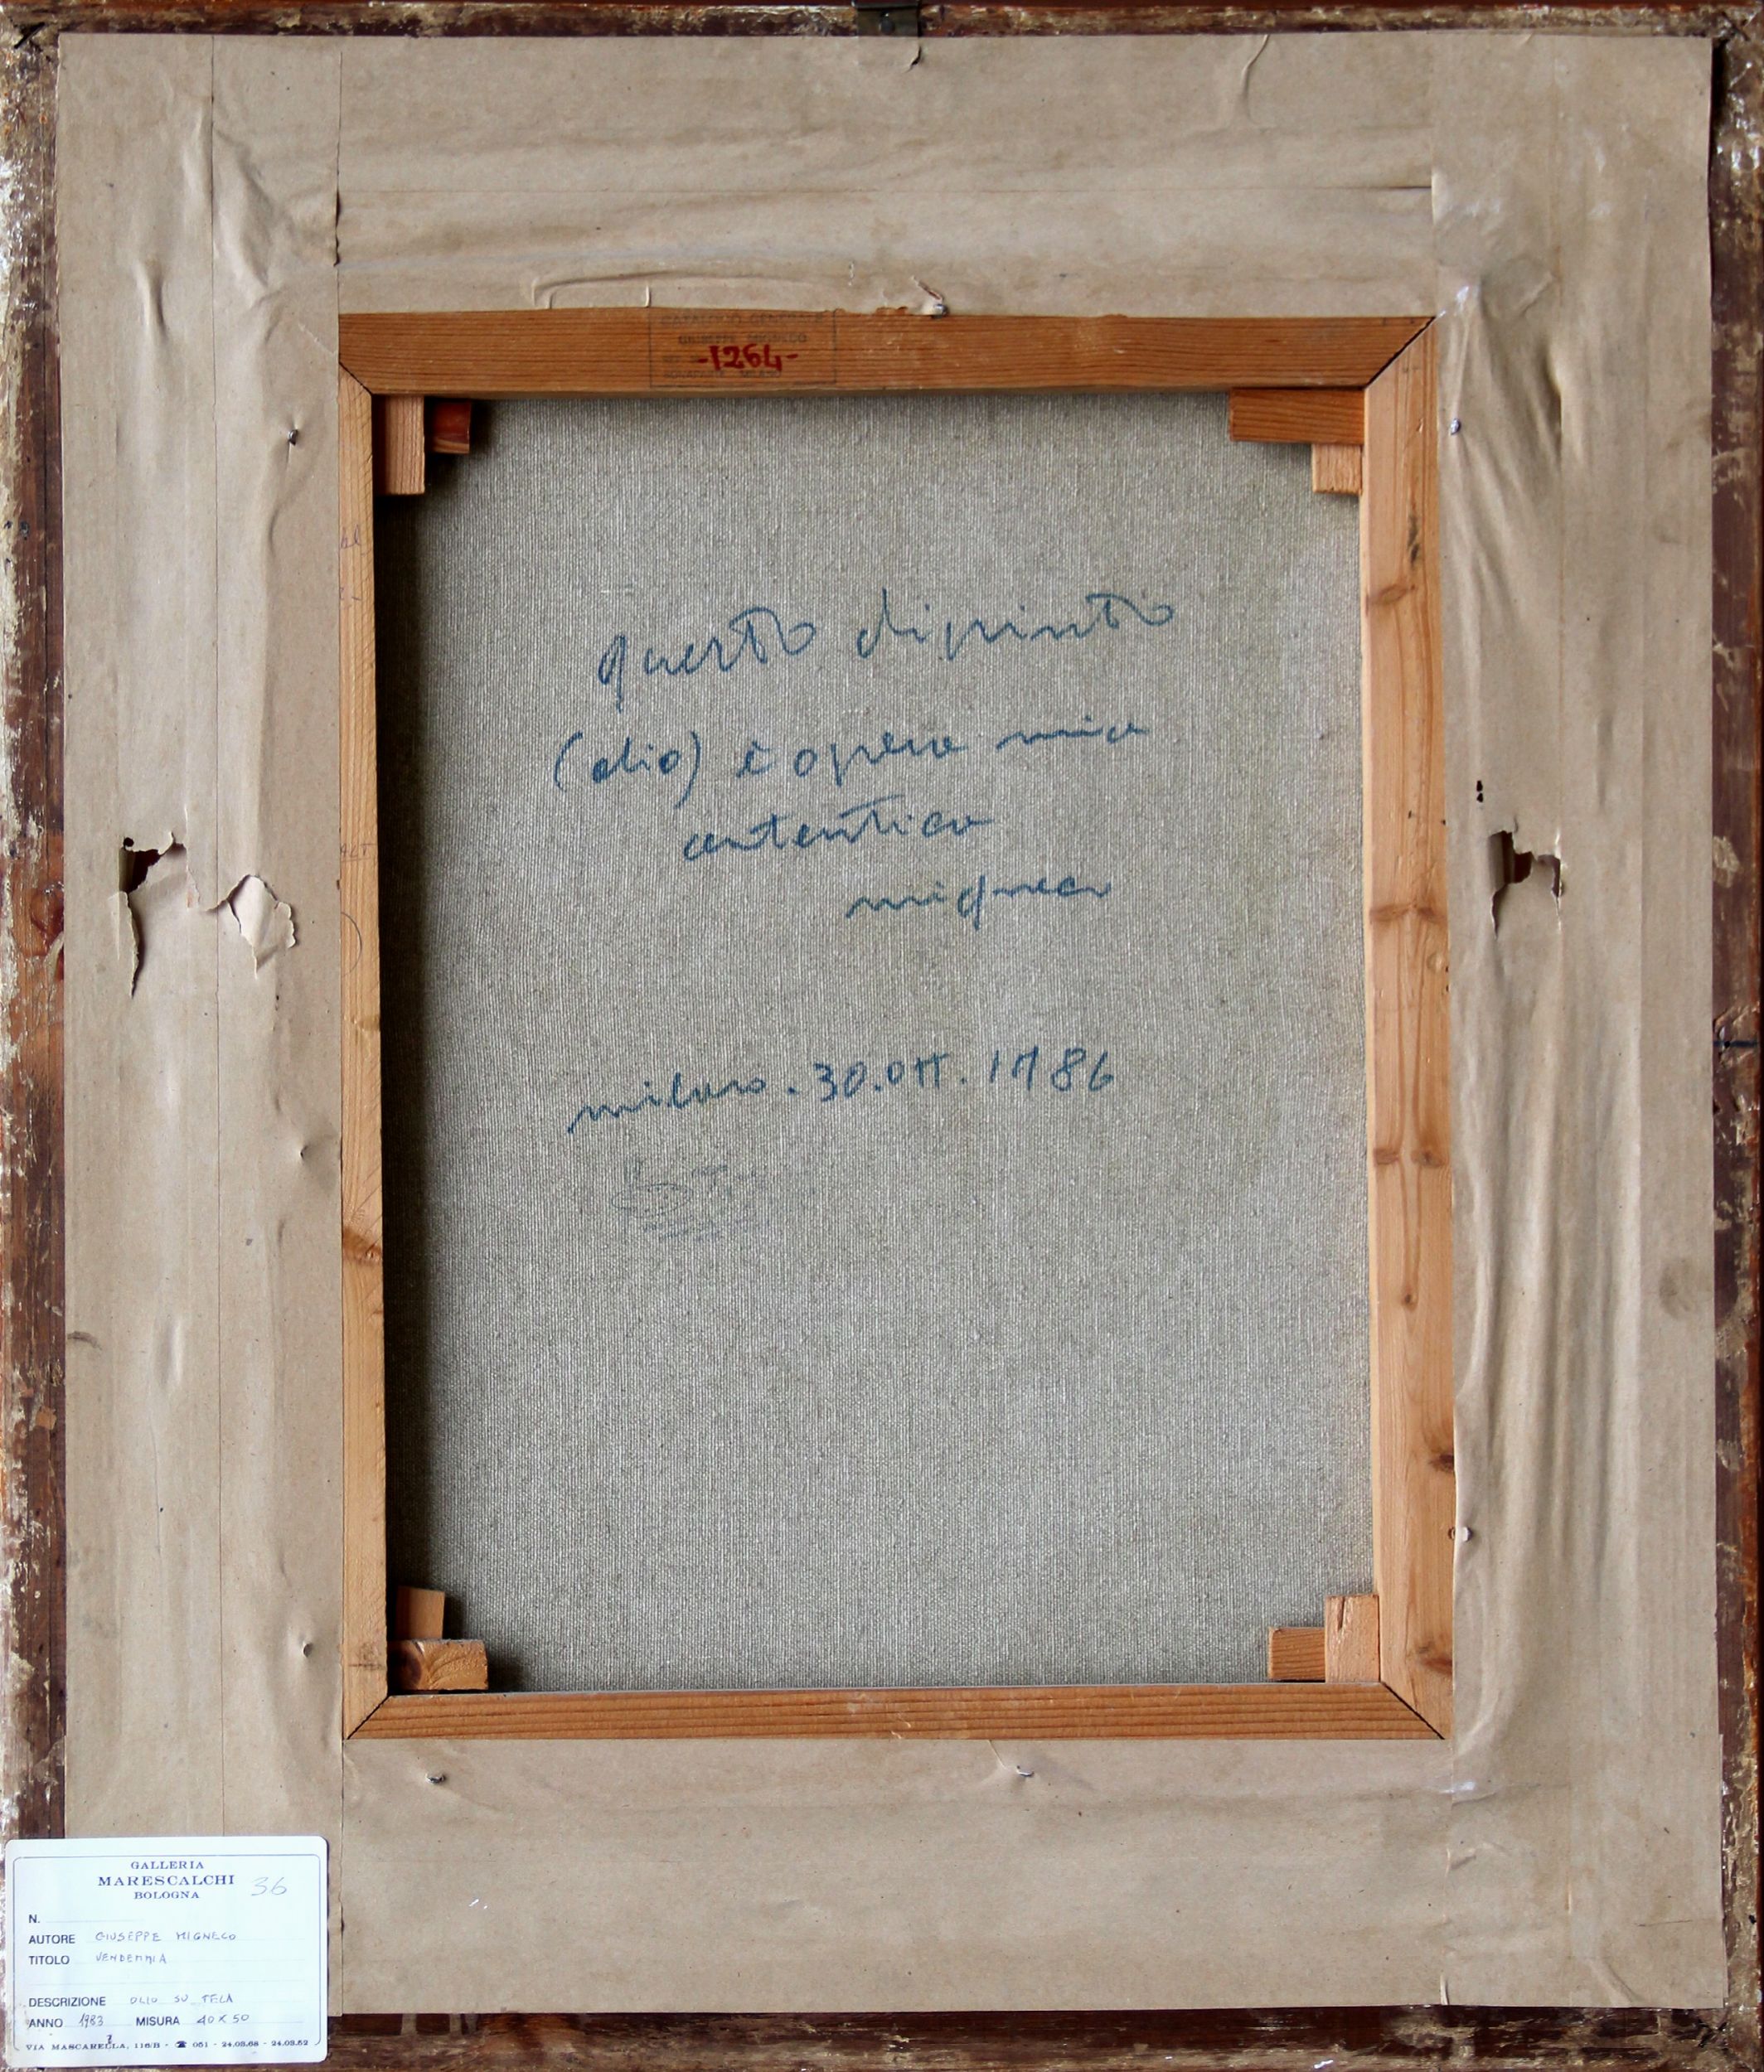 CATALOGO GENERALE
GIUSEPPE MIGNECO
-1264-
MILANO
questo dipinto
(olio) è opera mia
autentica
migneco
milano. 30.ott. 1986
GALLERIA
MARESCALCHI 36
BOLOGNA
N.
AUTORE GIUSEPPE MIGNECO
TITOLO VENDEMMIA
DESCRIZIONE OLIO SU TELA
ANNO 1983 MISURA 40 X 50
VIA MASCARELLA, 116/B - ☎ 051 - 24.03.68 - 24.03.52